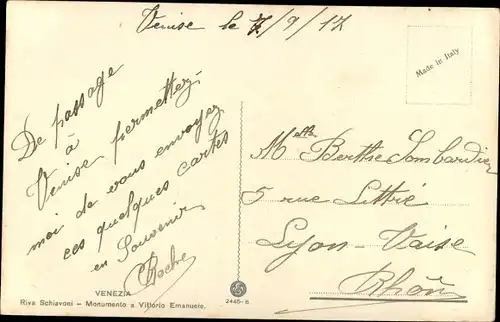 Venise le 7/9/17
Made in Italy
De passage
à
Venise permettez-
moi de vous envoyez
ces quelques cartes
en Souvenir
Melle Berthe Lombardier
5 rue Littré
Lyon-Vaise
Rhône
VENEZIA
Riva Schiavoni - Monumento a Vittorio Emanuele.
2445-8